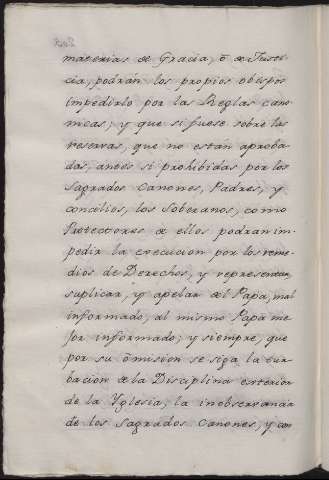 materias de Gracia, ô de Justi-
cia, podrán los propios obispos
impedirlo por las Reglas cano-
nicas; y que si fuese sobre las
reservas, que no están aproba-
das, antes si prohibidas por los
Sagrados Canones, Padres, y
concilios, los Soberanos, como
Protectores de ellos podran im-
pedir la execucion por los reme-
dios de Derechos, y representar,
suplicar, y apelar del Papa, mal
informado, al mismo Papa me-
jor informado; y siempre, que
por su ômision se siga la tur-
bacion de la Disciplina exterior
de la Yglesia, la inobservancia
de los Sagrados Canones, y con